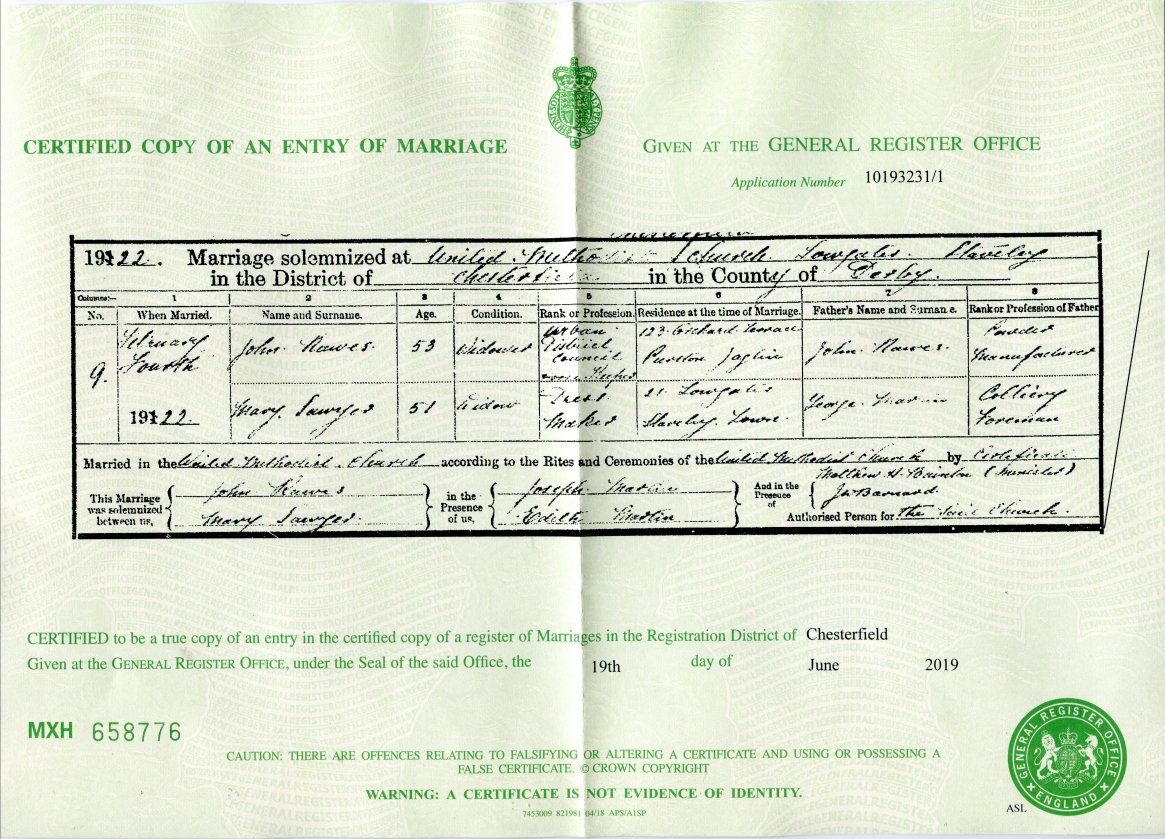 CERTIFIED COPY OF AN ENTRY OF MARRIAGE
GIVEN AT THE GENERAL REGISTER OFFICE
Application Number 10193231/1
1922. Marriage solemnized at United Methodist Church Lowgates. Staveley
in the District of Chesterfield in the County of Derby.
Columns:— 1 2 3 4 5 6 7 8
No. When Married. Name and Surname. Age. Condition. Rank or Profession. Residence at the time of Marriage. Father's Name and Surname. Rank or Profession of Father
9. February Fourth 1922.
John Rawes. 53 Widower Urban District Council 123 Orchard Terrace Purston Jaglin John Rawes. Powder Manufacturer
Mary Sawyer 51 Widow Dress Maker 21 Lowgates Staveley Town. George Martin Colliery Foreman
Married in the United Methodist Church according to the Rites and Ceremonies of the United Methodist Church by Certificate
This Marriage was solemnized between us, John Rawes Mary Sawyer.
in the Presence of us, Joseph Martin Edith Martin
And in the Presence of Matthew H (Minister)
J. Barnard.
Authorised Person for the said Church.
CERTIFIED to be a true copy of an entry in the certified copy of a register of Marriages in the Registration District of Chesterfield
Given at the GENERAL REGISTER OFFICE, under the Seal of the said Office, the 19th day of June 2019
MXH 658776
CAUTION: THERE ARE OFFENCES RELATING TO FALSIFYING OR ALTERING A CERTIFICATE AND USING OR POSSESSING A
FALSE CERTIFICATE. © CROWN COPYRIGHT
WARNING: A CERTIFICATE IS NOT EVIDENCE OF IDENTITY.
7453009 821981 04/18 APS/A1SP
ASL
GENERAL REGISTER OFFICE
ENGLAND